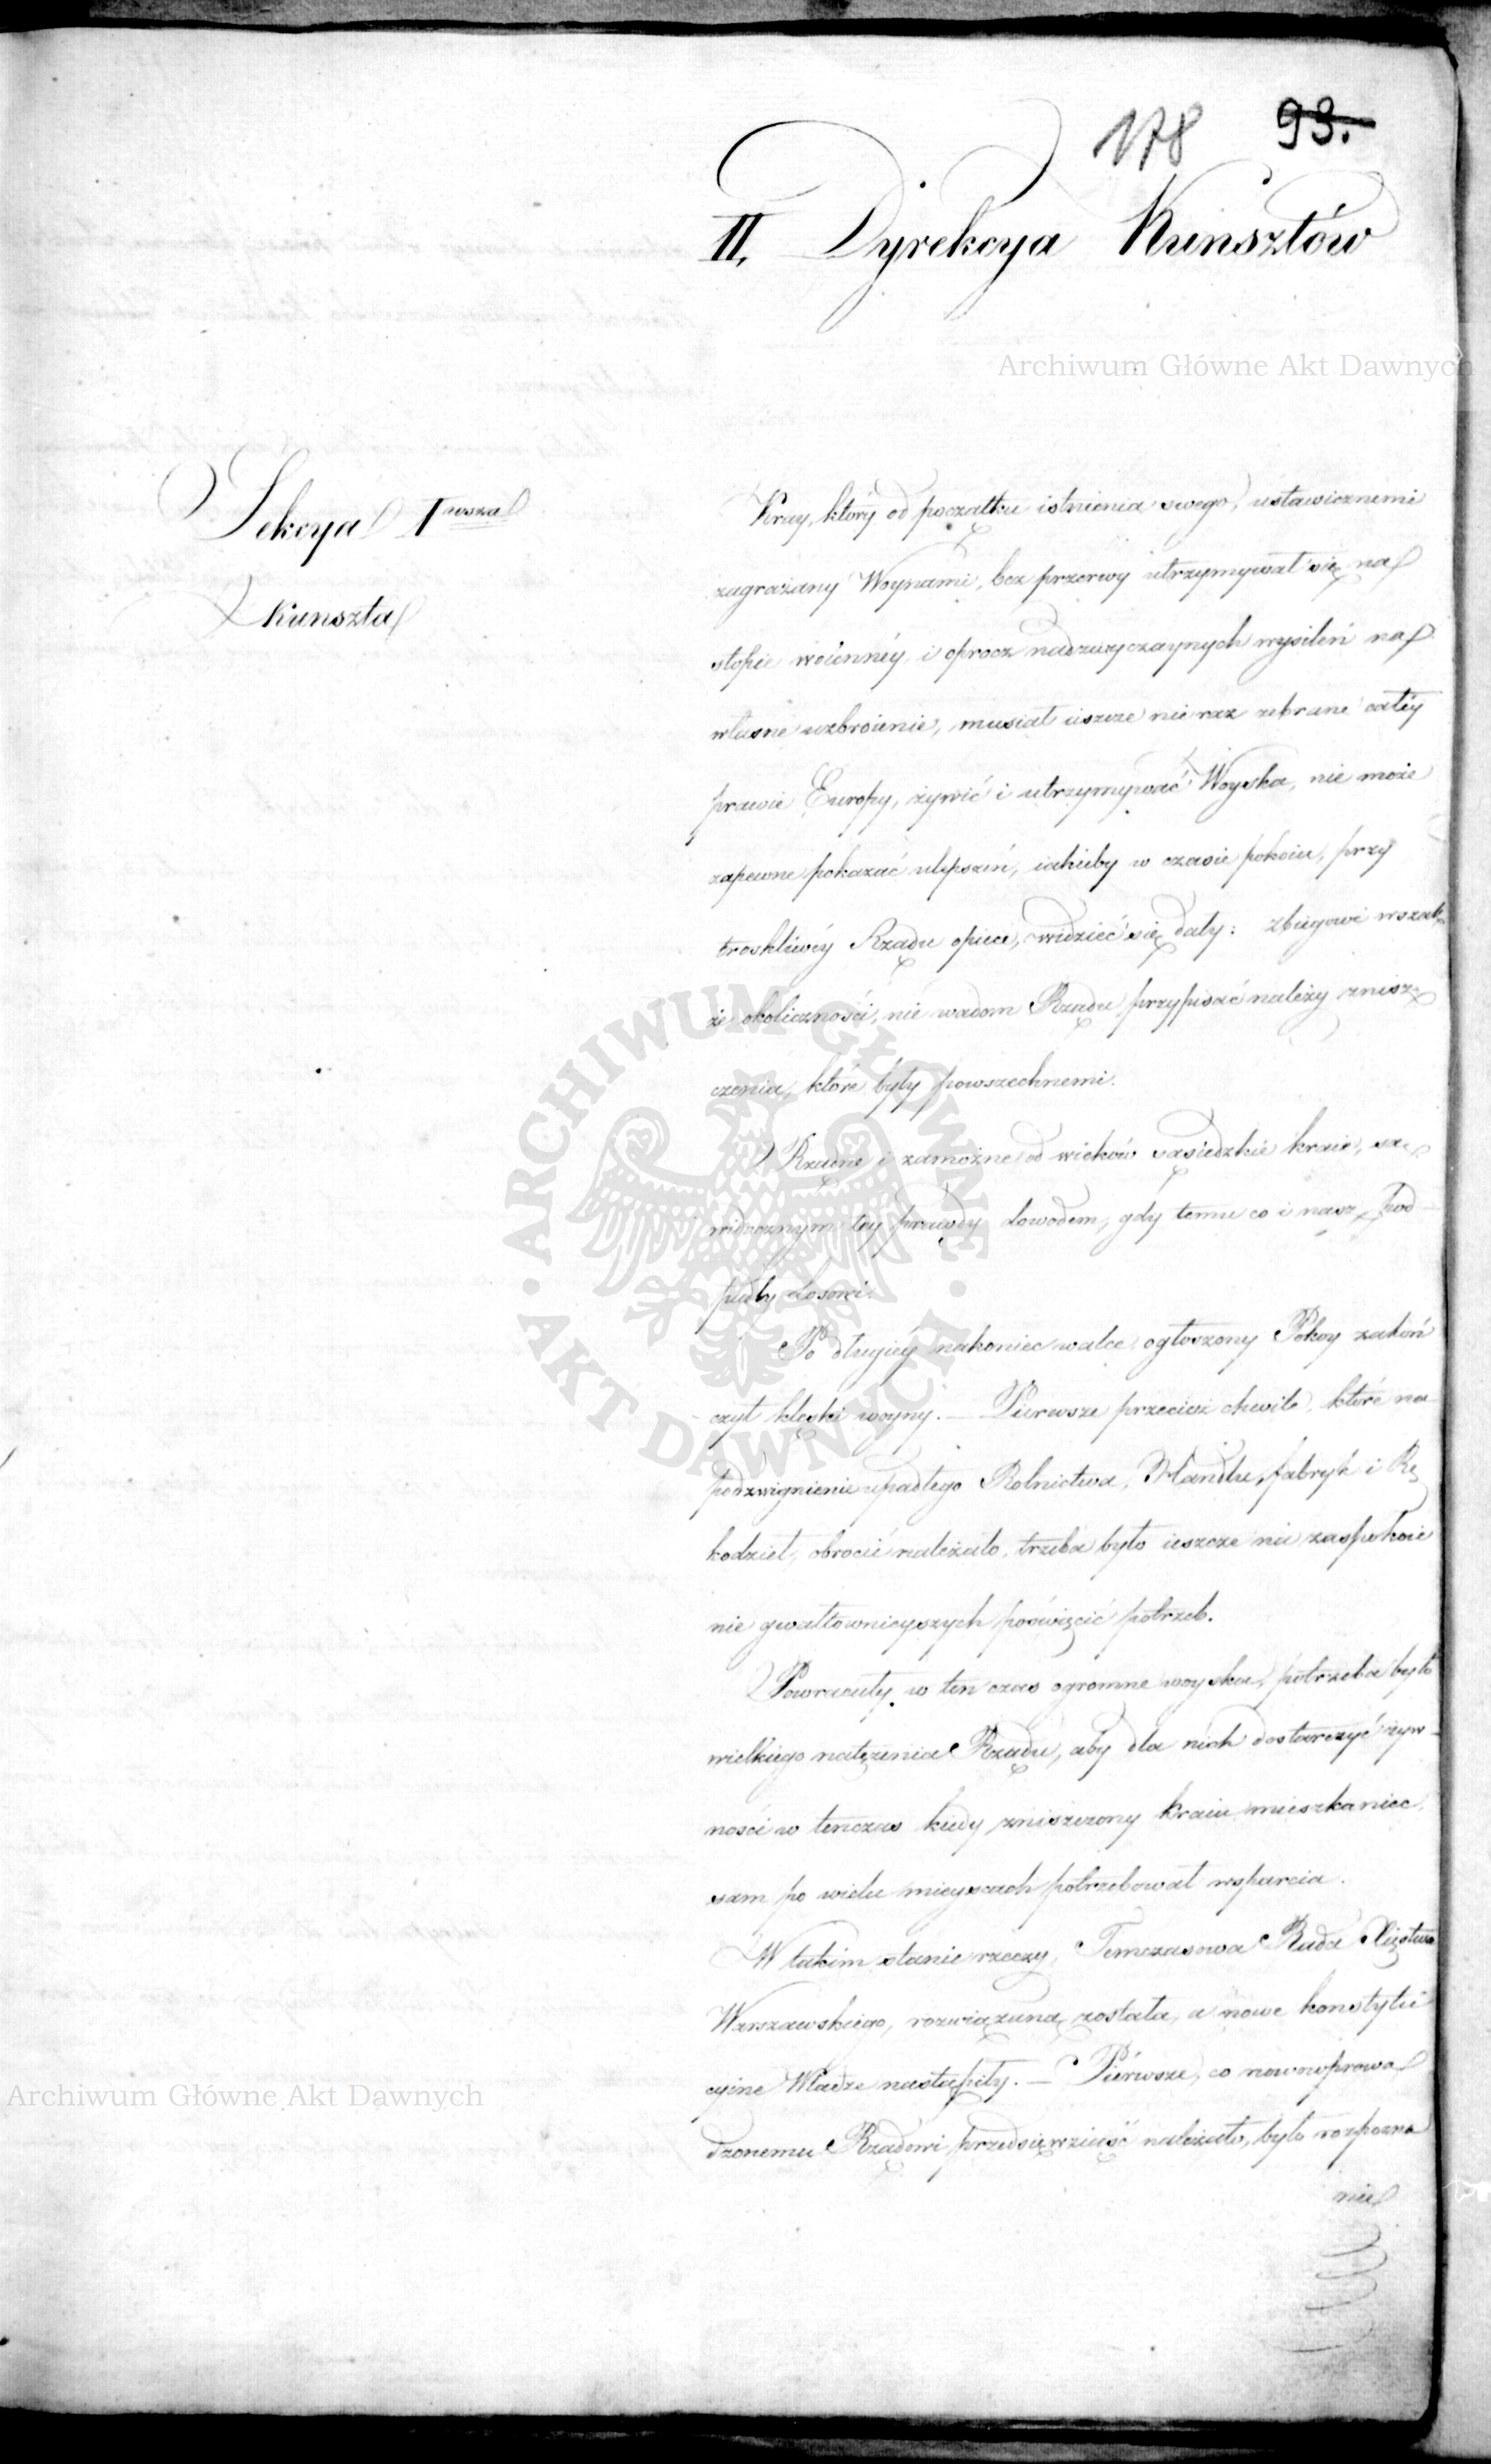 178 93.
II. Dyrekcya Kunsztów
Archiwum Główne Akt Dawnych
Sekcya Iwsza
Kunszta
Kray, który od początku istnienia swego, ustawicznemi
zagrażany Woynami, bez przerwy utrzymywał się na
stopie woienney i oprocz nadzwyczaynych wysileń na
własne uzbroienie, musiał ieszcze nie raz zebrane całéy
prawie Europy, żywić i utrzymywać Woyska, nie może
zapewne pokazać ulepszeń, iakieby w czasie pokoiu, przy
troskliwéy Rządu opiece, widzieć się dały: zbiegowi wszak
że okoliczności, nie wadom Rządu przypisać należy znisz-
czenia, które były powszechnemi.
Rządne i zamożne od wieków sąsiedzkie kraie, są
widocznym téy prawdy dowodem, gdy temu co i nasz, pod
padły Losowi.
Po długiéy nakoniec walce, ogłoszony Pokoy zakoń
czył klęski woyny. — Pierwsze przecież chwile, które na
podzwignienie upadłego Rolnictwa, Handlu, fabryk i Rę
kodzieł, obrocić należało, trzeba było ieszcze na zaspokoie
nie gwałtownieyszych poświęcić potrzeb.
Powracały w ten czas ogromne woyska, potrzeba było
wielkiego natężenia Rządu, aby dla nich dostarczyć żyw-
ności w tenczas kiedy zniszczony kraiu mieszkaniec,
sam po wielu mieyscach potrzebował wsparcia.
W takim stanie rzeczy, Temczasowa Rada Xięstwa
Warszawskiego, rozwiązaną została, a nowe konstytu
cyine Władze nastąpiły. — Pierwsze, co nowowprowa
dzonemu Rządowi przedsięwziąść należało, było rozpozna
nie
ARCHIWUM GŁÓWNE AKT DAWNYCH
Archiwum Główne Akt Dawnych